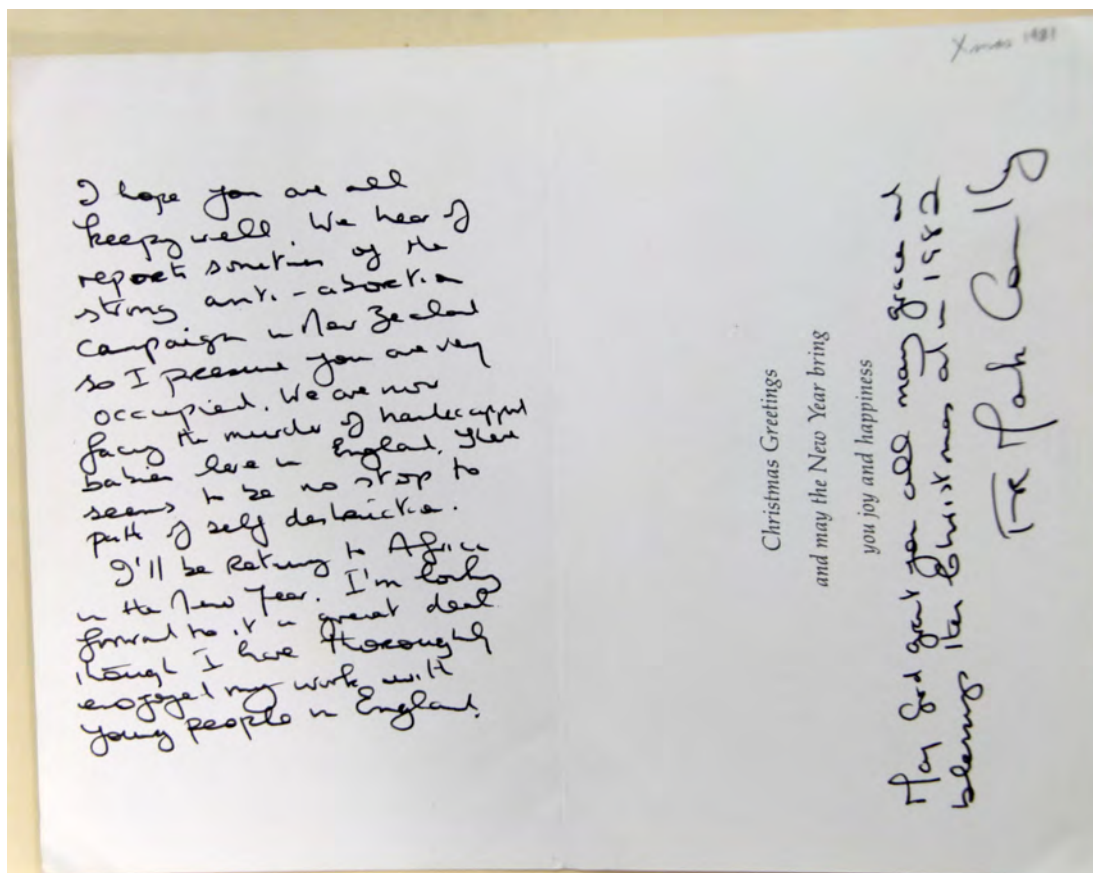 Xmas 1981
I hope you are all
keepg well. We hear of
reports sometimes of the
strong anti-abortion
campaign in New Zealand
so I presume you are very
occupied. We are now
facing the murder of handicapped
babies here in England. There
seems to be no stop to
path of self destruction.
I'll be returng to Africa
in the New Year. I'm looking
forward to it a great deal
though I have thoroughly
enjoyed my work with
young people in England.
Christmas Greetings
and may the New Year bring
you joy and happiness
May God grant you all many graces and
blessings this Christmas and in 1982
Fr Mark